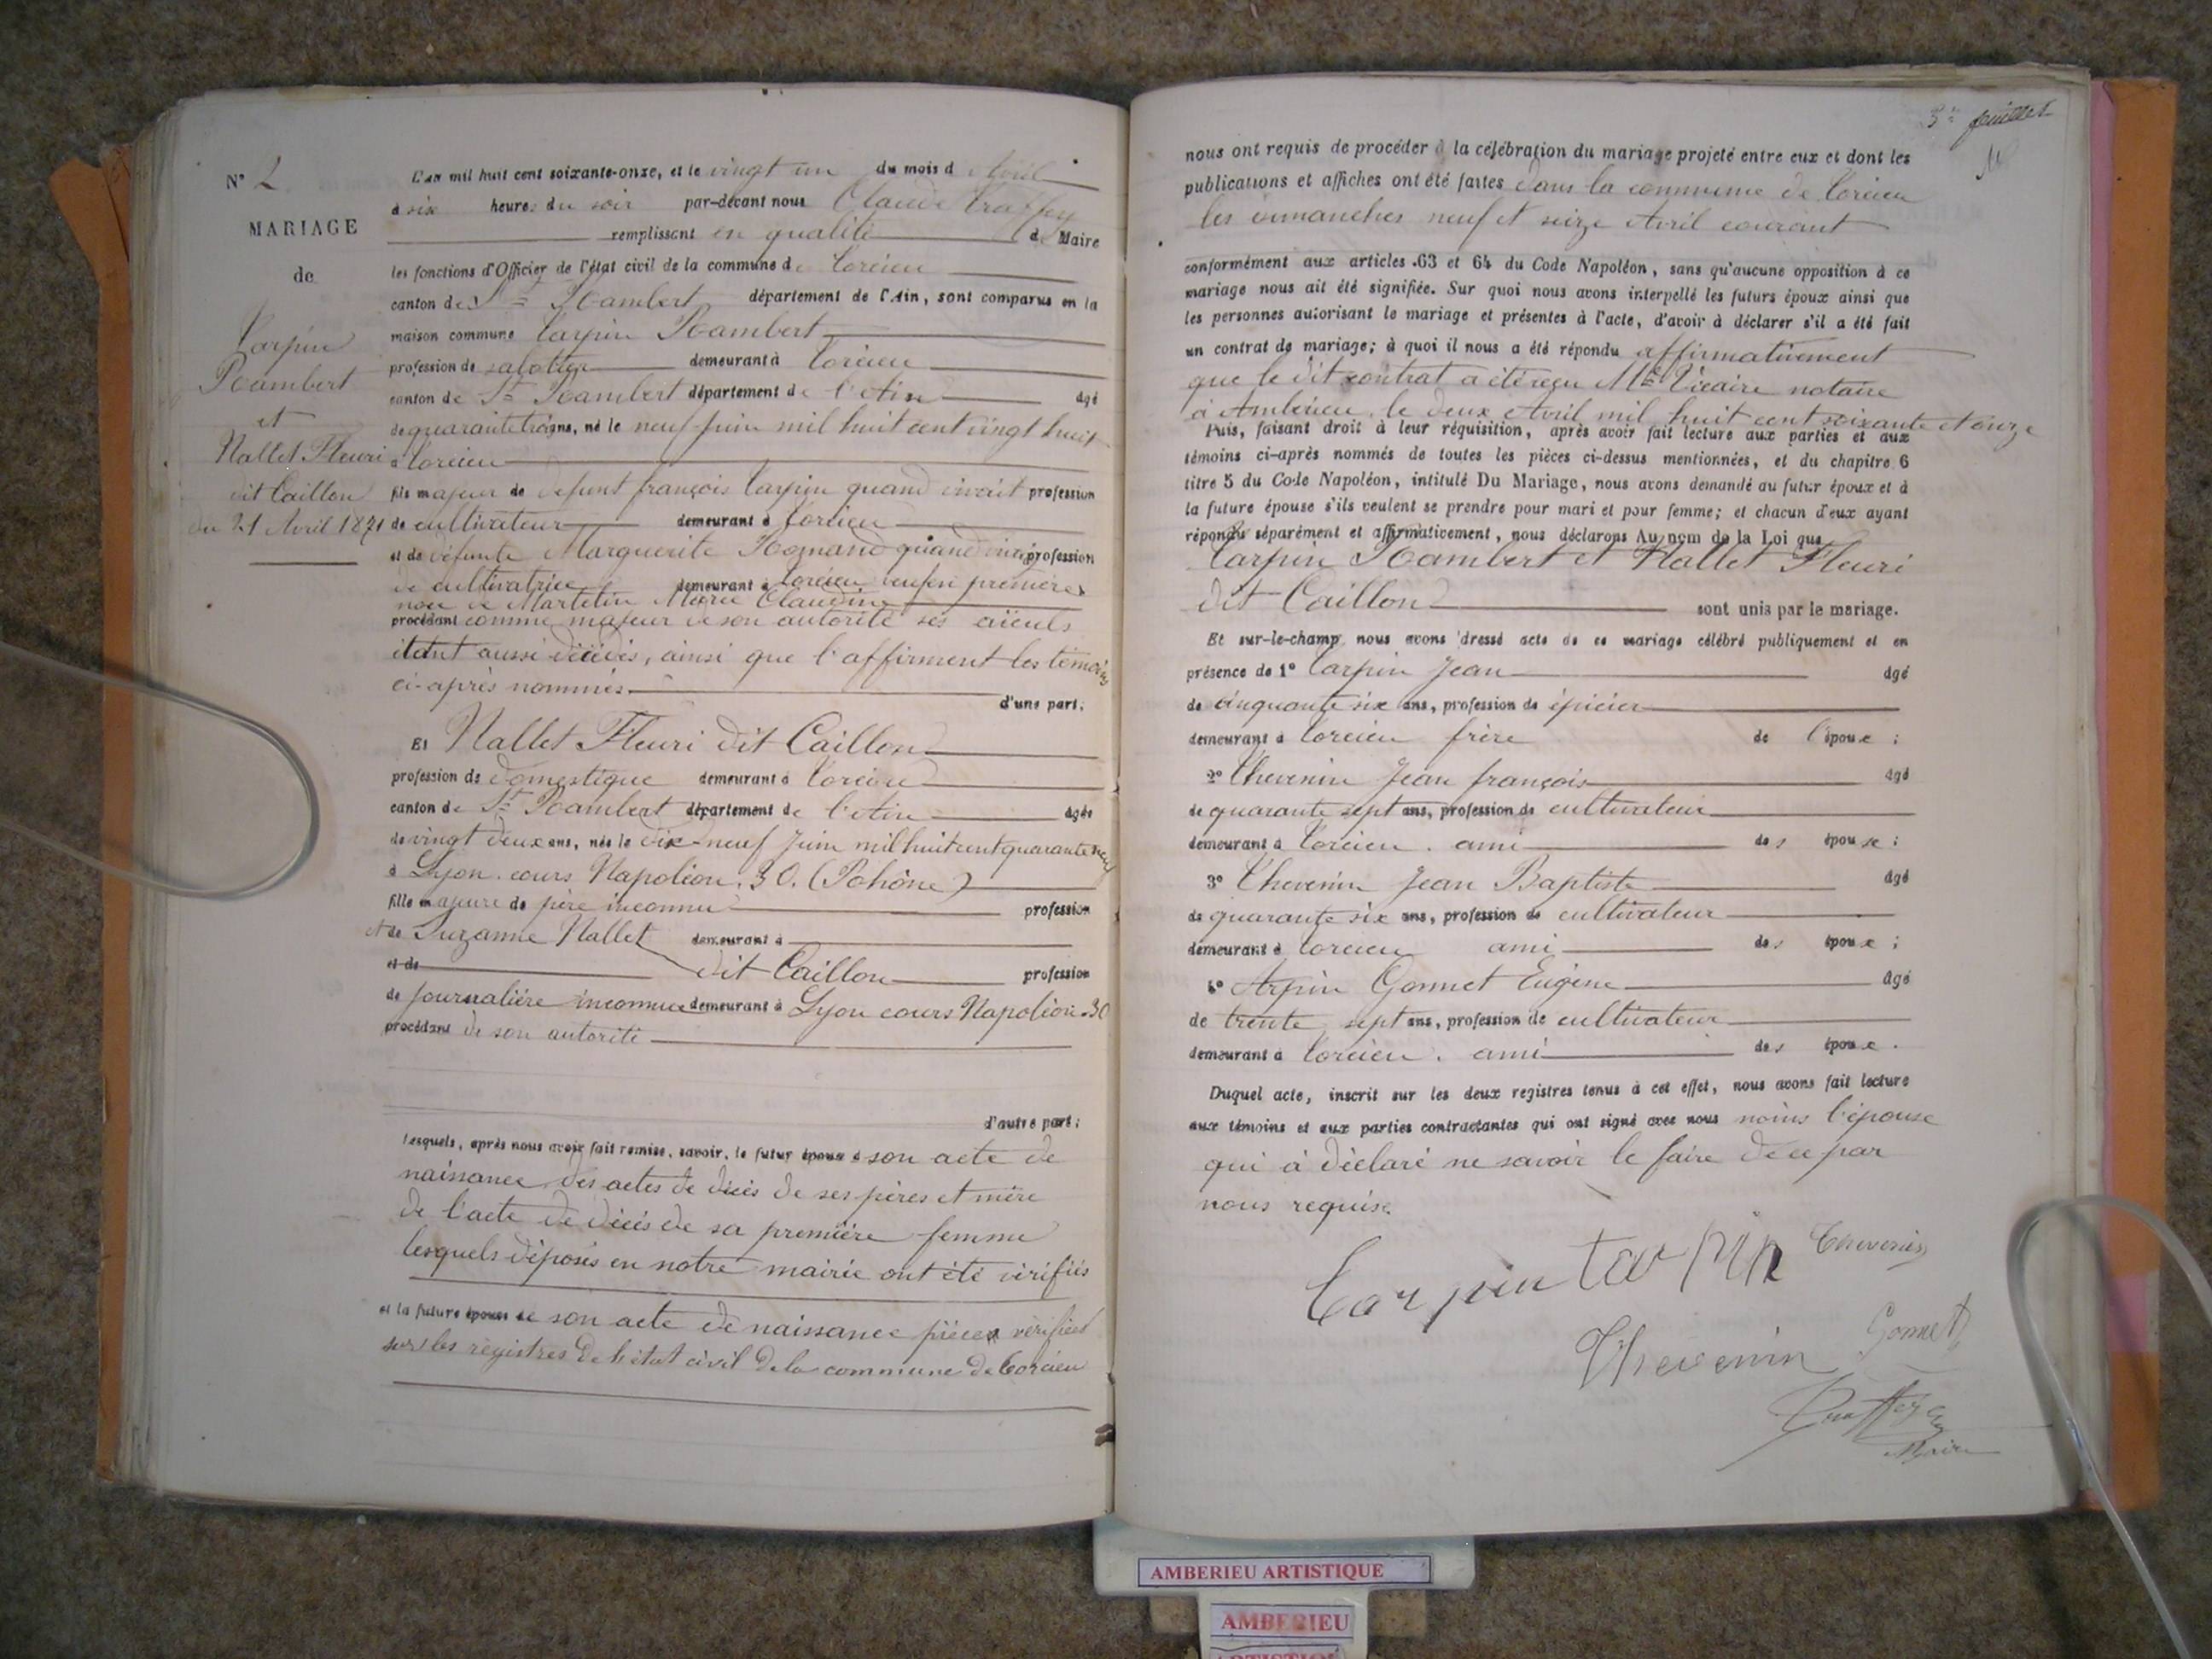 N° 2
MARIAGE
de
Tarpin
Rambert
et
Nallet Fleuri
dit Caillon
du 21 Avril 1871
L'an mil huit cent soixante-onze, et le vingt un du mois d'Avril
à six heures du soir par-devant nous Claude Truffey
remplissant en qualité de Maire
les fonctions d'Officier de l'état civil de la commune de Torcieu
canton de St Rambert département de l'Ain, sont comparus en la
maison commune Tarpin Rambert
profession de sabotier demeurant à Torcieu
canton de St Rambert département de l'Ain âgé
de quarante trois ans, né le neuf juin mil huit cent vingt huit
à Torcieu
fils majeur de defunt françois Tarpin quand vivait profession
de cultivateur demeurant à Torcieu
et de défunte Marguerite quand vivait profession
de cultivatrice demeurant à Torcieu veuf en première
noce de Martelin Marie Claudine
procédant comme majeur de son autorité ses aïeuls
étant aussi décédés, ainsi que l'affirment les témoins
ci-après nommés.
d'une part;
Et Nallet Fleuri dit Caillon
profession de domestique demeurant à Torcieu
canton de St Rambert département de l'Ain âgée
de vingt deux ans, née le dix-neuf Juin mil huit cent quarante neuf
à Lyon. cours Napoléon. 30. (Rohône)
fille majeure de père inconnu profession
et de Suzanne Nallet demeurant à
et de dit Caillon profession
de journalière inconnue demeurant à Lyon cours Napoléon 30
procédant de son autorité
d'autre part;
Lesquels, après nous avoir fait remise, savoir, le futur époux de son acte de
naissance des actes de décès de ses pères et mère
de l'acte de décès de sa première femme
lesquels déposés en notre mairie ont été vérifiés
et la future épouse de son acte de naissance pièces vérifiées
sur les registres de l'état civil de la commune de Torcieu
3e feuillet
nous ont requis de procéder à la célébration du mariage projeté entre eux et dont les
publications et affiches ont été faites dans la commune de Torcieu
les dimanches neuf et seize Avril courant
conformément aux articles 63 et 64 du Code Napoléon, sans qu'aucune opposition à ce
mariage nous ait été signifiée. Sur quoi nous avons interpellé les futurs époux ainsi que
les personnes autorisant le mariage et présentes à l'acte, d'avoir à déclarer s'il a été fait
un contrat de mariage; à quoi il nous a été répondu affirmativement
que le dit contrat a été reçu Me Vicaire notaire
à Ambérieu le deux Avril mil huit cent soixante et onze
Puis, faisant droit à leur réquisition, après avoir fait lecture aux parties et aux
témoins ci-après nommés de toutes les pièces ci-dessus mentionnées, et du chapitre 6
titre 5 du Code Napoléon, intitulé Du Mariage, nous avons demandé au futur époux et à
la future épouse s'ils veulent se prendre pour mari et pour femme; et chacun d'eux ayant
répondu séparément et affirmativement, nous déclarons Au nom de la Loi que
Tarpin Rambert et Nallet Fleuri
dit Caillon sont unis par le mariage.
Et sur-le-champ nous avons dressé acte de ce mariage célébré publiquement et en
présence de 1° Tarpin Jean âgé
de cinquante six ans, profession de épicier
demeurant à Torcieu frère de l'époux;
2° Thevenin Jean françois âgé
de quarante sept ans, profession de cultivateur
demeurant à Torcieu. ami des épouse;
3° Thevenin Jean Baptiste âgé
de quarante six ans, profession de cultivateur
demeurant à Torcieu ami des époux;
4° Arpin Gonnet Eugène âgé
de trente sept ans, profession de cultivateur
demeurant à Torcieu. ami des époux.
Duquel acte, inscrit sur les deux registres tenus à cet effet, nous avons fait lecture
aux témoins et aux parties contractantes qui ont signé avec nous moins l'épouse
qui à déclaré ne savoir le faire de ce par
nous requise.
Tarpin tarpin Thevenin
Thevenin Gonnet
Truffey
Maire
AMBERIEU ARTISTIQUE
AMBERIEU
ARTISTIQUE